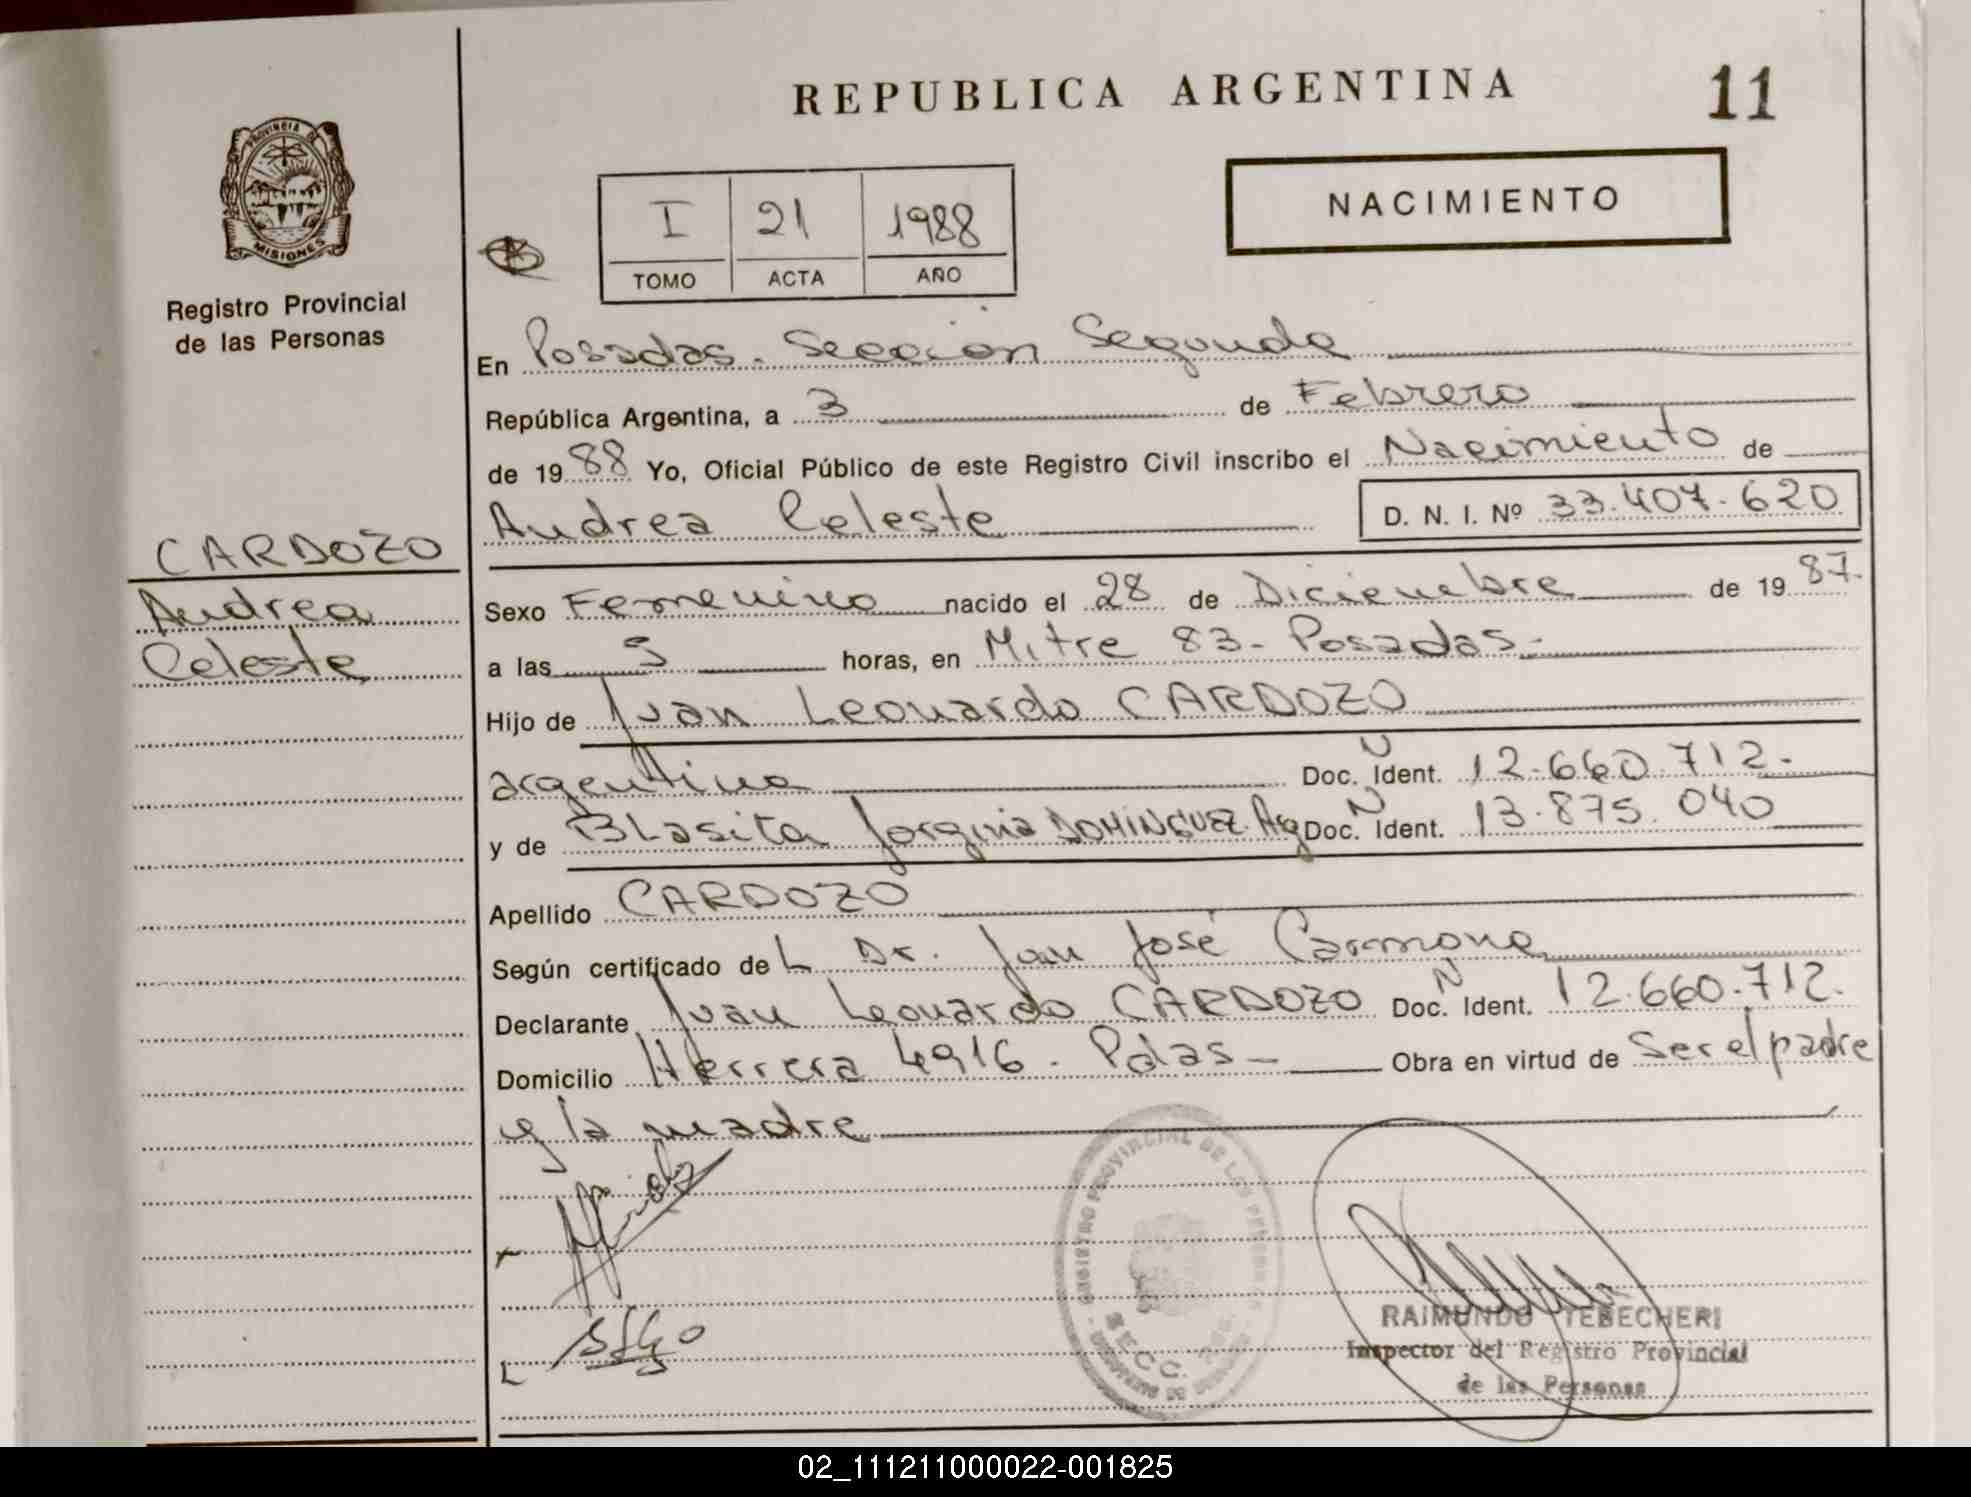 REPUBLICA ARGENTINA
11
PROVINCIA D
MISIONES
Registro Provincial
de las Personas
I 21 1988
TOMO ACTA AÑO
NACIMIENTO
En Posadas. Sección Segunda
República Argentina, a 3 de Febrero
de 1988 Yo, Oficial Público de este Registro Civil inscribo el Nacimiento de
Andrea Celeste D. N. I. Nº 33.407.620
CARDOZO
Andrea
Celeste
Sexo Femenino nacido el 28 de Diciembre de 1987.
a las 5 horas, en Mitre 83- Posadas-
Hijo de Juan Leonardo CARDOZO
argentino Doc. N Ident. 12.660.712.
y de BLasita Jorginia DOMINGUEZ. Ag Doc. N Ident. 13.875.040
Apellido CARDOZO
Según certificado de L Dr. Juan José Carmona
Declarante Juan Leonardo CARDOZO Doc. N Ident. 12.660.712.
Domicilio Herrera 4916. Pdas- Obra en virtud de Ser el padre
y la madre
REGISTRO PROVINCIAL DE LAS PERSONAS
SECC.
RAIMUNDO TEBECHERI
Inspector del Registro Provincial
de las Personas
02_111211000022-001825